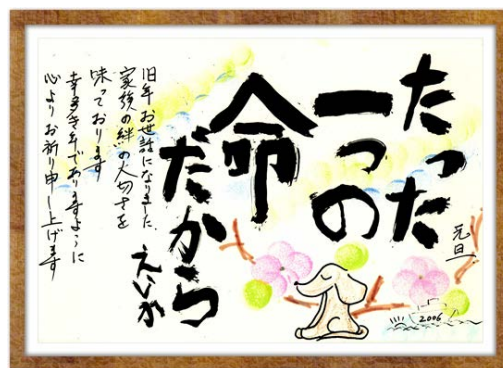 たった
一つの
命
だから
えいか
元旦
2006
旧年お世話になりました
家族の絆の大切さを
味っております
幸多き年でありますように
心よりお祈り申し上げます